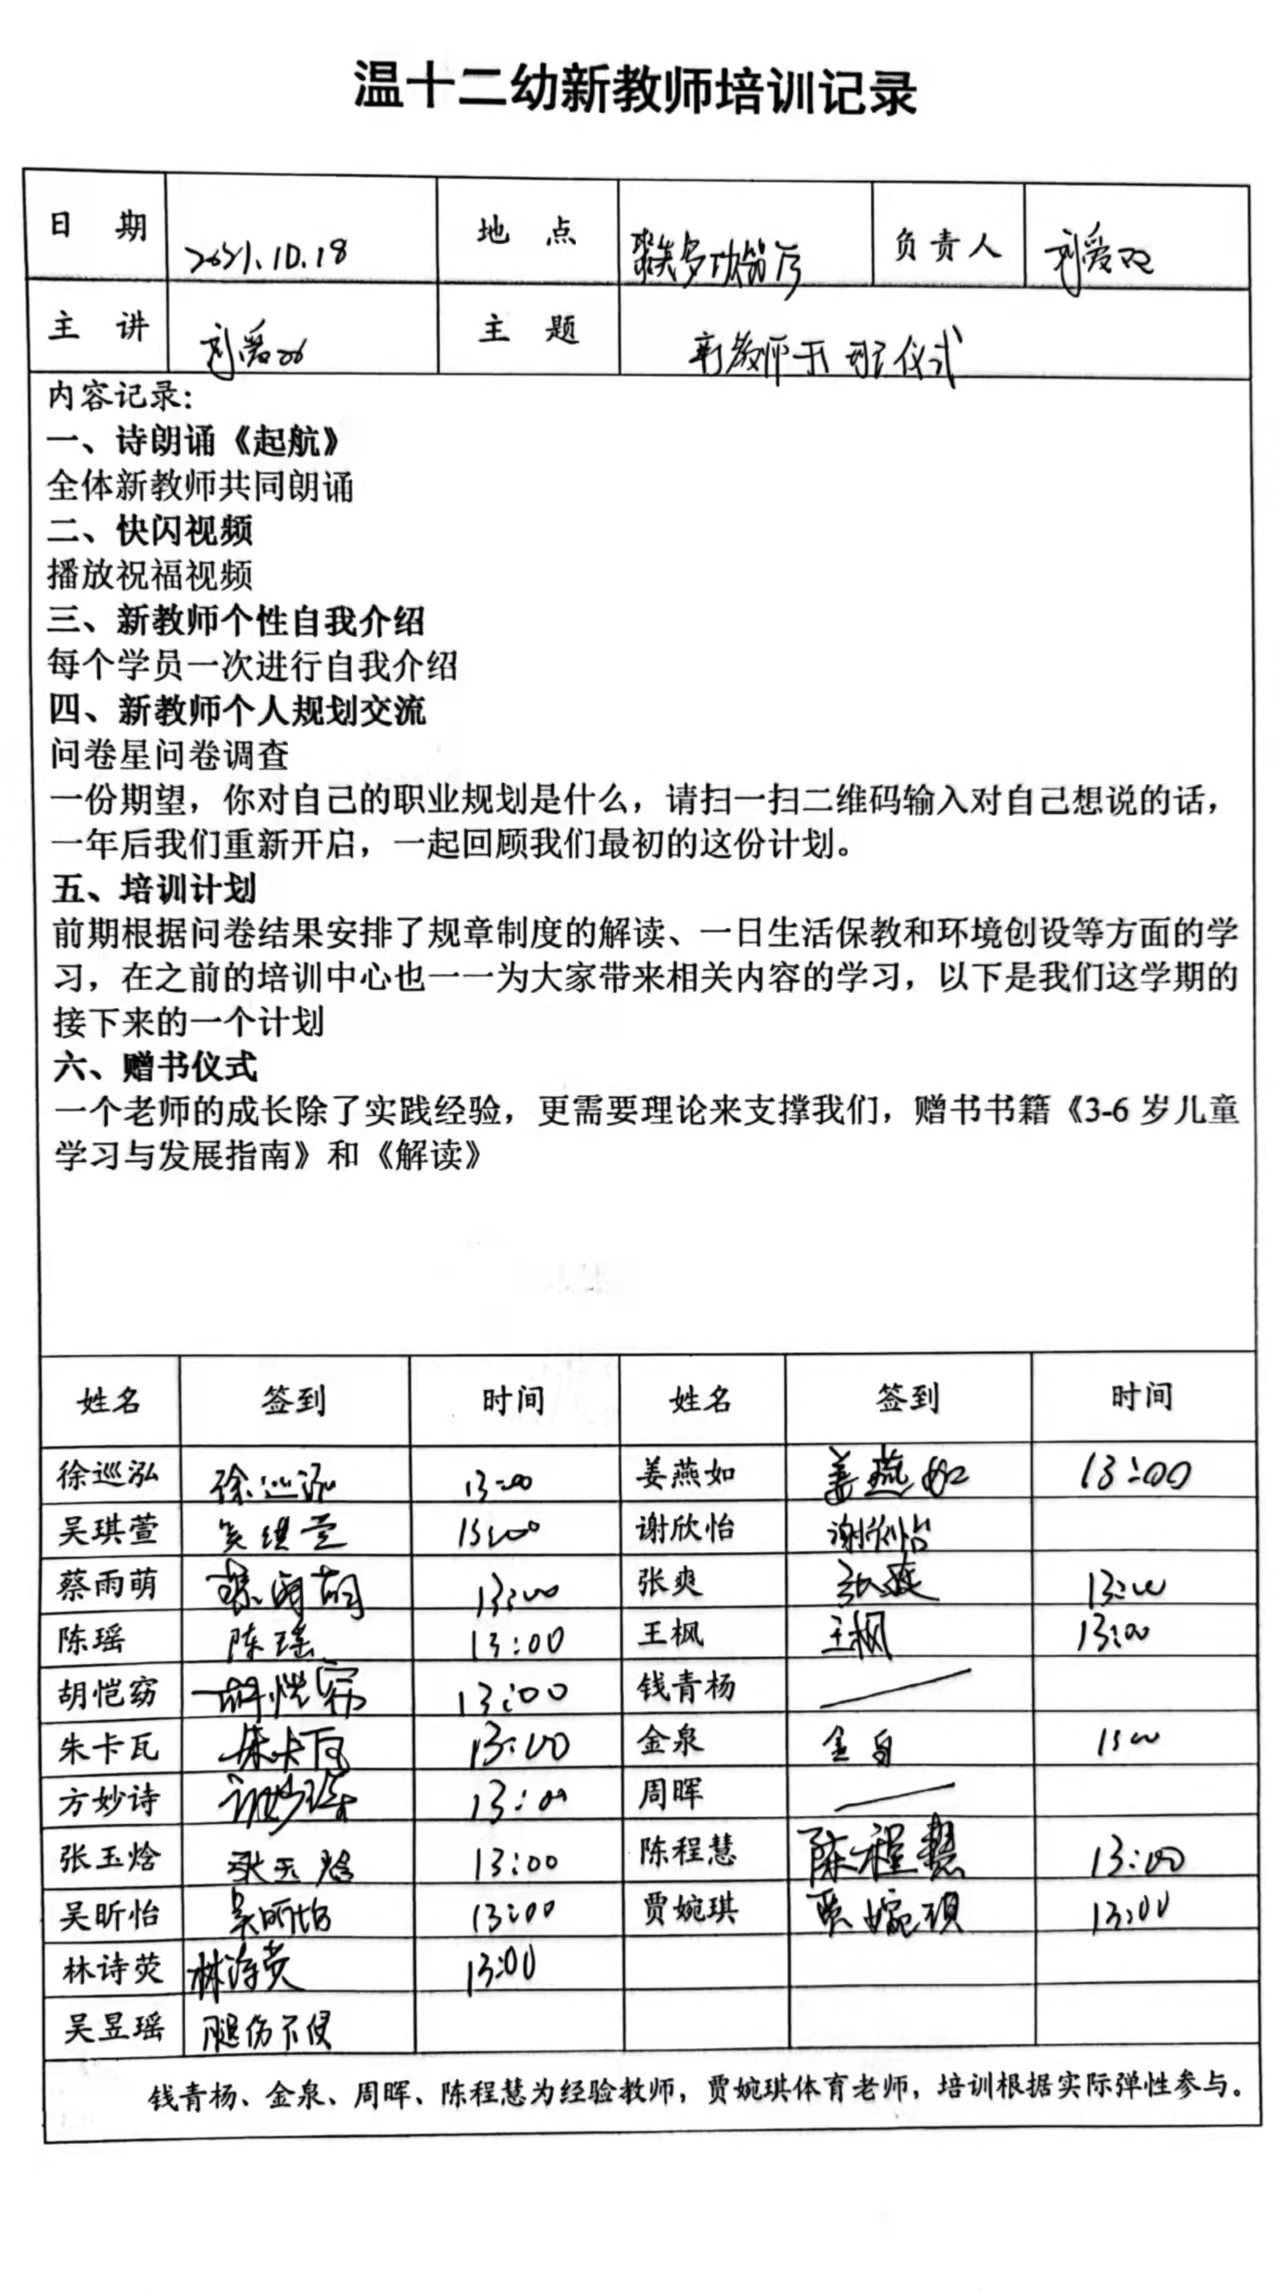 温十二幼新教师培训记录
日 期 2021.10.18 地 点 多功能厅 负责人 刘爱双
主 讲 刘爱双 主 题 新教师开班仪式
内容记录：
一、诗朗诵《起航》
全体新教师共同朗诵
二、快闪视频
播放祝福视频
三、新教师个性自我介绍
每个学员一次进行自我介绍
四、新教师个人规划交流
问卷星问卷调查
一份期望，你对自己的职业规划是什么，请扫一扫二维码输入对自己想说的话，
一年后我们重新开启，一起回顾我们最初的这份计划。
五、培训计划
前期根据问卷结果安排了规章制度的解读、一日生活保教和环境创设等方面的学
习，在之前的培训中心也一一为大家带来相关内容的学习，以下是我们这学期的
接下来的一个计划
六、赠书仪式
一个老师的成长除了实践经验，更需要理论来支撑我们，赠书书籍《3-6 岁儿童
学习与发展指南》和《解读》
姓名 签到 时间 姓名 签到 时间
徐巡泓 徐巡泓 13:00 姜燕如 姜燕如 13:00
吴琪萱 吴琪萱 13:00 谢欣怡 谢欣怡
蔡雨萌 蔡雨萌 13:00 张爽 张爽 13:00
陈瑶 陈瑶 13:00 王枫 王枫 13:00
胡恺窈 胡恺窈 13:00 钱青杨
朱卡瓦 朱卡瓦 13:00 金泉 金泉 13:00
方妙诗 方妙诗 13:00 周晖
张玉焓 张玉焓 13:00 陈程慧 陈程慧 13:00
吴昕怡 吴昕怡 13:00 贾婉琪 贾婉琪 13:00
林诗荧 林诗荧 13:00
吴昱瑶 腿伤不便
钱青杨、金泉、周晖、陈程慧为经验教师，贾婉琪体育老师，培训根据实际弹性参与。